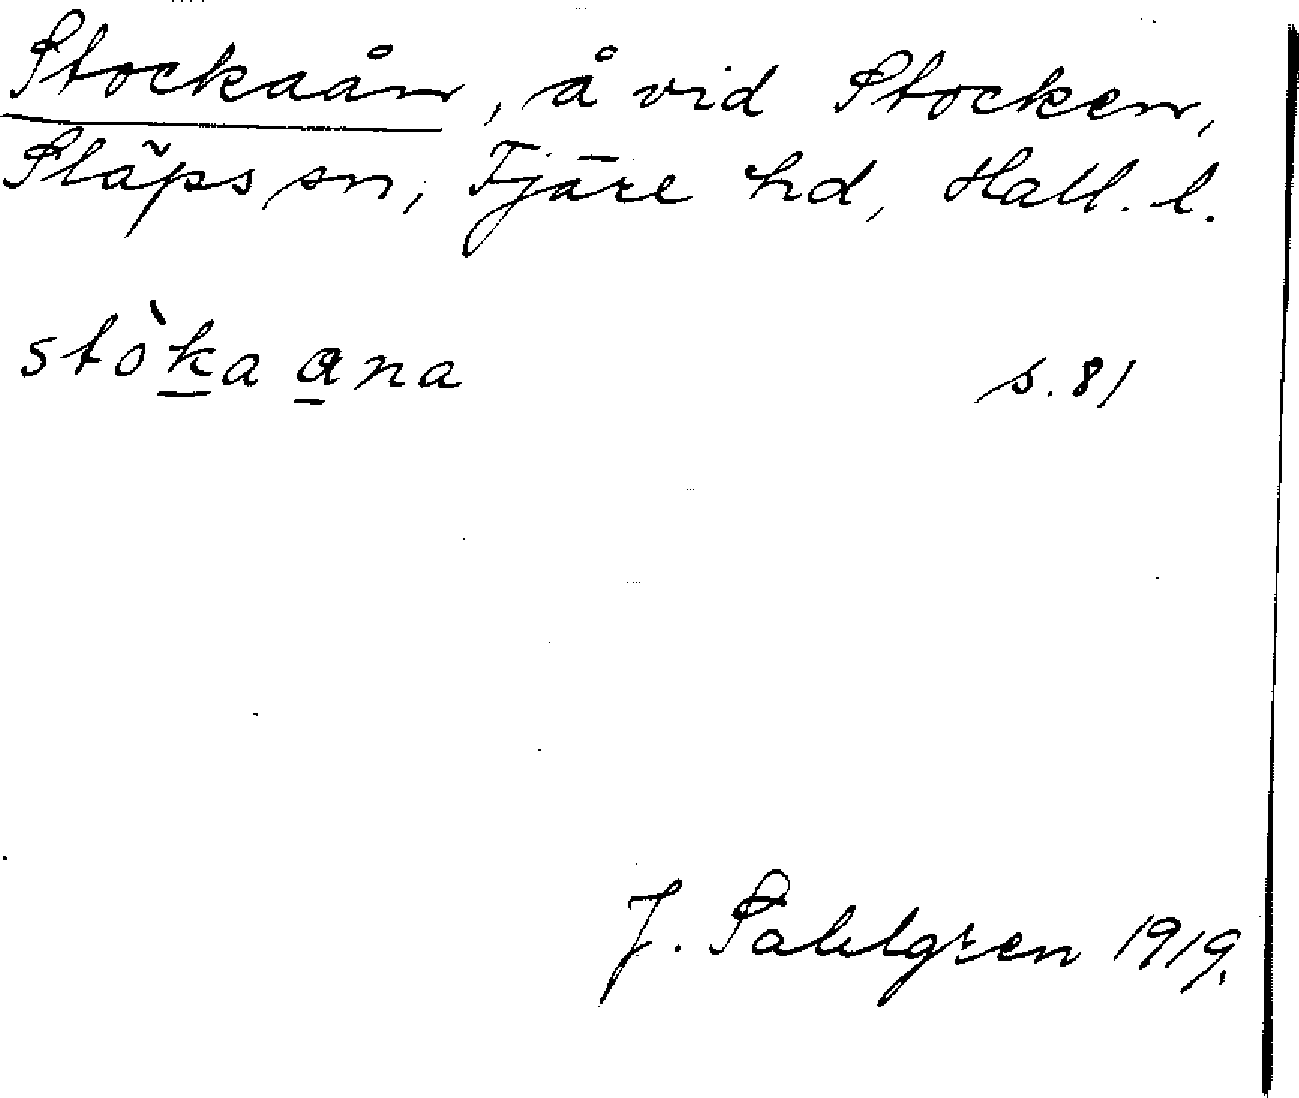 Stockaån, å vid Stocken,
Släps sn, Fjäre hd, Hall. l.
stòka ana s. 81
J. Sahlgren 1919.